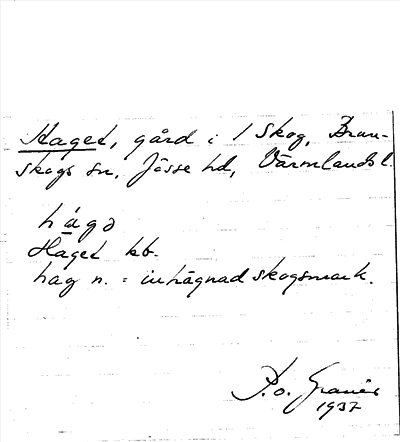 Haget, gård i / Skog, Brun-
skogs sn, Jösse hd, Värmlands l.
hágə
Haget kb.
hag n. = inhägnad skogsmark.
P.o. Granér
1937